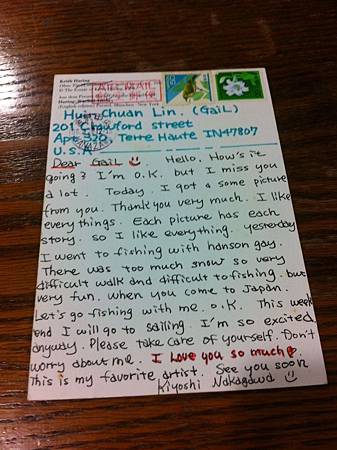 Keith Haring
AIR MAIL
Huin Chuan Lin. (GaiL)
201 Crawford street
Apt 320, Terre Haute IN47807
U.S.A
Dear Gail Hello. How's it
going? I'm o.k. but I miss you
a lot. Today. I got a some picture
from you. Thank you very much. I like
every things. Each picture has each
story. so I like everything. yesterday
I went to fishing with hanson gay.
There was too much snow so very
difficult walk and difficult to fishing. but
very fun. when you come to Japan.
Let's go fishing with me. o.k. This week
end I will go to sailing. I'm so excited
anyway. Please take care of yourself. Don't
worry about me. I Love you so much
This is my favorite artist. See you soon
Kiyoshi Nakagawa